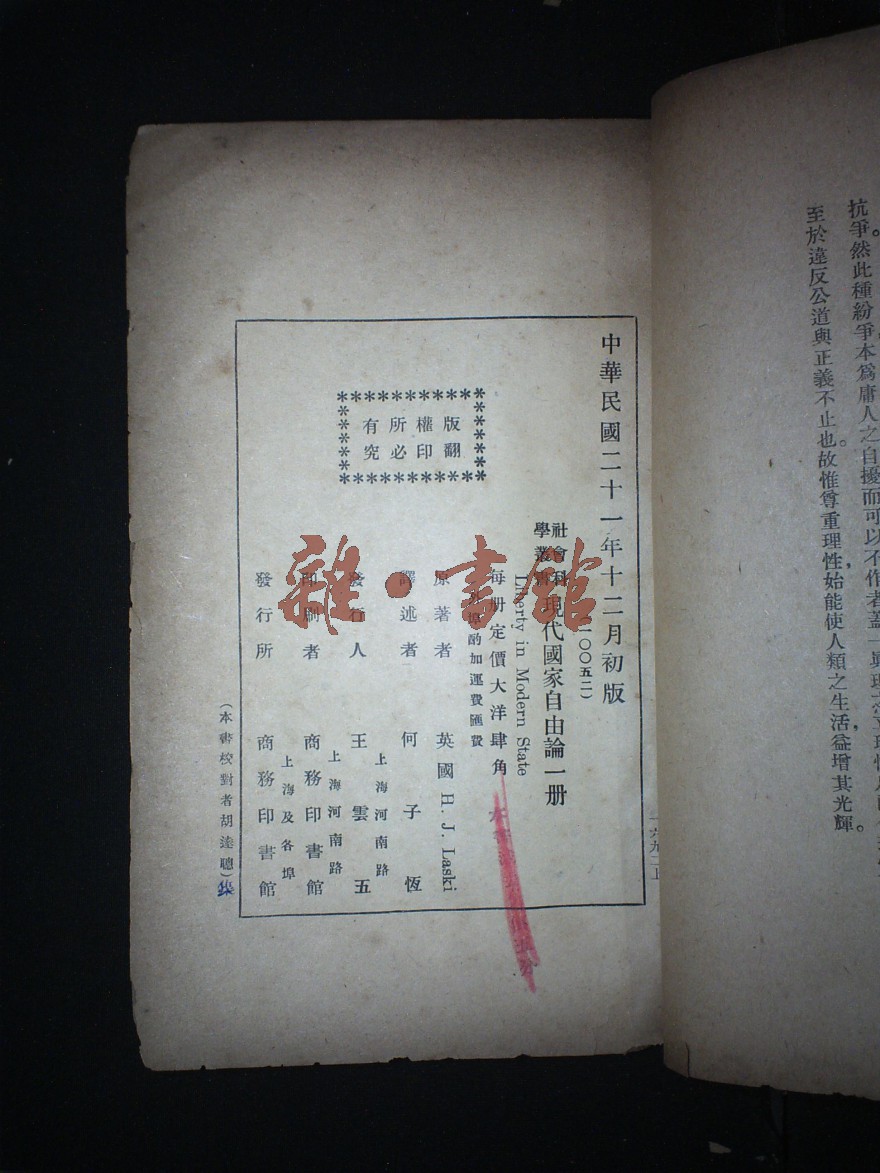 至於違反公道與正義不止也。故惟尊重理性,始能使人類之生活益增其光輝。
中華民國二十一年十二月初版
(一〇〇五二)
社會科
學叢書
現代國家自由論一册
Liberty in Modern State
每册定價大洋肆角
埠酌加運費匯費
原著者 英國 H. J. Laski
譯述者 何子恆
發行人 王雲五
上海河南路
印刷者 商務印書館
上海河南路
發行所 商務印書館
上海及各埠
版權所有
翻印必究
(本書校對者胡達聰)
雜·書館